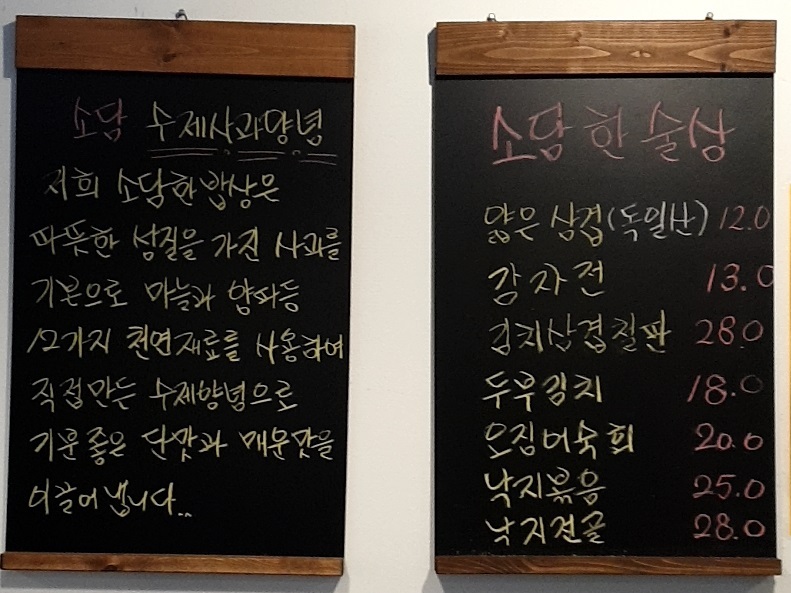 소담 수제사과양념
저희 소담한밥상은
따뜻한 성질을 가진 사과를
기본으로 마늘과 양파등
12가지 천연재료를 사용하여
직접만든 수제양념으로
기분좋은 단맛과 매운맛을
이끌어냅니다..
소담한술상
얇은 삼겹(독일산) 12.0
감자전 13.0
김치삼겹철판 28.0
두부김치 18.0
오징어숙회 20.0
낙지볶음 25.0
낙지전골 28.0